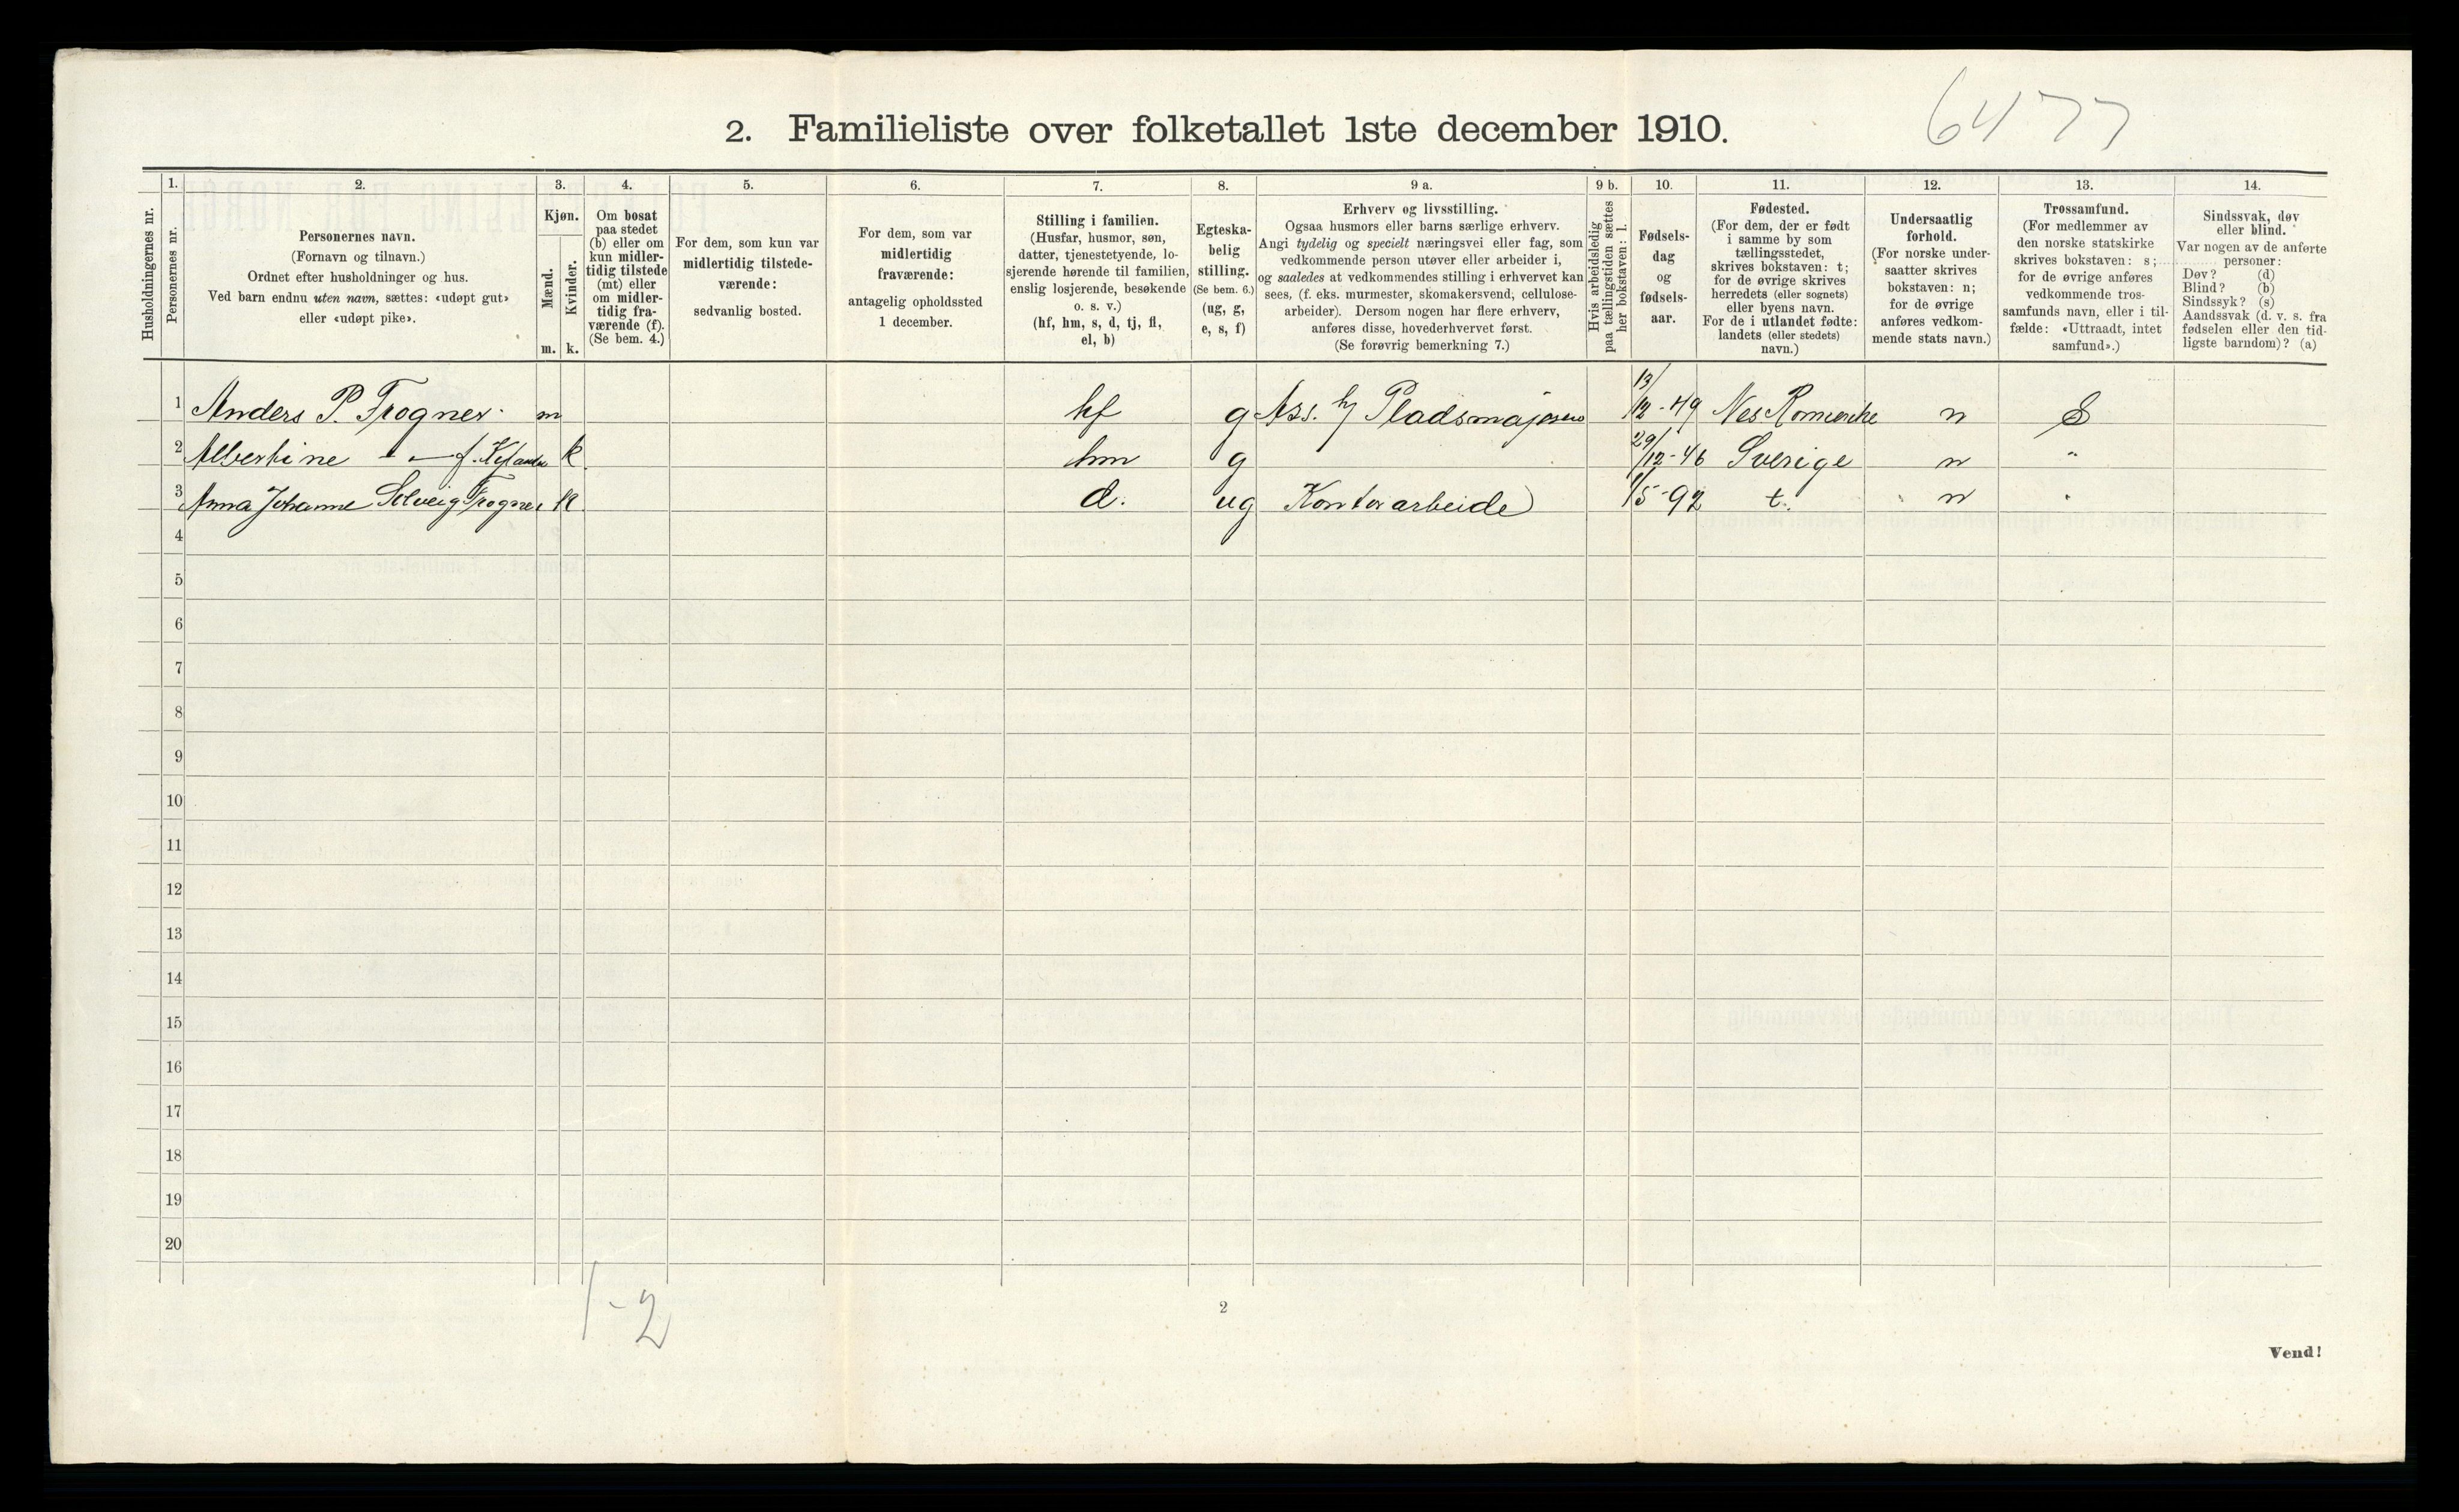 6477
2. Familieliste over folketallet 1ste december 1910.
Husholdningernes nr.
1.
Personernes nr.
2.
Personernes navn.
(Fornavn og tilnavn.)
Ordnet efter husholdninger og hus.
Ved barn endnu uten navn, sættes: «udøpt gut»
eller «udøpt pike».
3.
Kjøn.
Mænd.
Kvinder.
m. k.
4.
Om bosat
paa stedet
(b) eller om
kun midler-
tidig tilstede
(mt) eller
om midler-
tidig fra-
værende (f).
(Se bem. 4.)
5.
For dem, som kun var
midlertidig tilstede-
værende:
sedvanlig bosted.
6.
For dem, som var
midlertidig
fraværende:
antagelig opholdssted
1 december.
7.
Stilling i familien.
(Husfar, husmor, søn,
datter, tjenestetyende, lo-
sjerende hørende til familien,
enslig losjerende, besøkende
o. s. v.)
(hf, hm, s, d, tj, fl,
el, b)
8.
Egteska-
belig
stilling.
(Se bem. 6.)
(ug, g,
e, s, f)
9 a.
Erhverv og livsstilling.
Ogsaa husmors eller barns særlige erhverv.
Angi tydelig og specielt næringsvei eller fag, som
vedkommende person utøver eller arbeider i,
og saaledes at vedkommendes stilling i erhvervet kan
sees, (f. eks. murmester, skomakersvend, cellulose-
arbeider). Dersom nogen har flere erhverv,
anføres disse, hovederhvervet først.
(Se forøvrig bemerkning 7.)
9 b.
Hvis arbeidsledig
paa tællingstiden sættes
her bokstaven: l.
10.
Fødsels-
dag
og
fødsels-
aar.
11.
Fødested.
(For dem, der er født
i samme by som
tællingsstedet,
skrives bokstaven: t;
for de øvrige skrives
herredets (eller sognets)
eller byens navn.
For de i utlandet fødte:
landets (eller stedets)
navn.)
12.
Undersaatlig
forhold.
(For norske under-
saatter skrives
bokstaven: n;
for de øvrige
anføres vedkom-
mende stats navn.)
13.
Trossamfund.
(For medlemmer av
den norske statskirke
skrives bokstaven: s;
for de øvrige anføres
vedkommende tros-
samfunds navn, eller i til-
fælde: «Uttraadt, intet
samfund».)
14.
Sindssvak, døv
eller blind.
Var nogen av de anførte
personer:
Døv? (d)
Blind? (b)
Sindssyk? (s)
Aandssvak (d. v. s. fra
fødselen eller den tid-
ligste barndom)? (a)
1 Anders P. Trogner m hf g Ass. 13/12-49 Nes Romerike n S
2 Albertine - " - f. k hm g 29/12-46 Sverige n "
3 Anna Johanne Solveig Trogner k d. ug Kontorarbeide 1/5-92 t. n "
4
5
6
7
8
9
10
11
12
13
14
15
16
17
18
19
20
1-2
2
Vend!